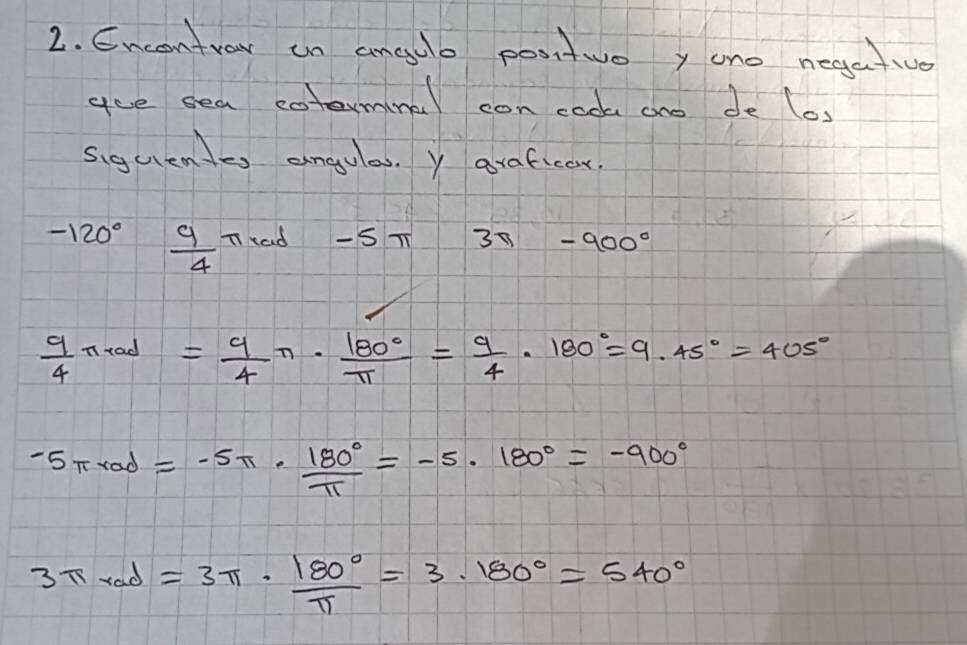 2. Encontrar un angulo positivo y uno negativo
que sea coterminal con cada uno de los
siguientes angulos. y graficar.
-120° 9/4 π rad -5π 3π -900°
9/4 π rad = 9/4 π · 180°/π = 9/4 · 180° = 9.45° = 405°
-5π rad = -5π · 180°/π = -5 · 180° = -900°
3π rad = 3π · 180°/π = 3 · 180° = 540°